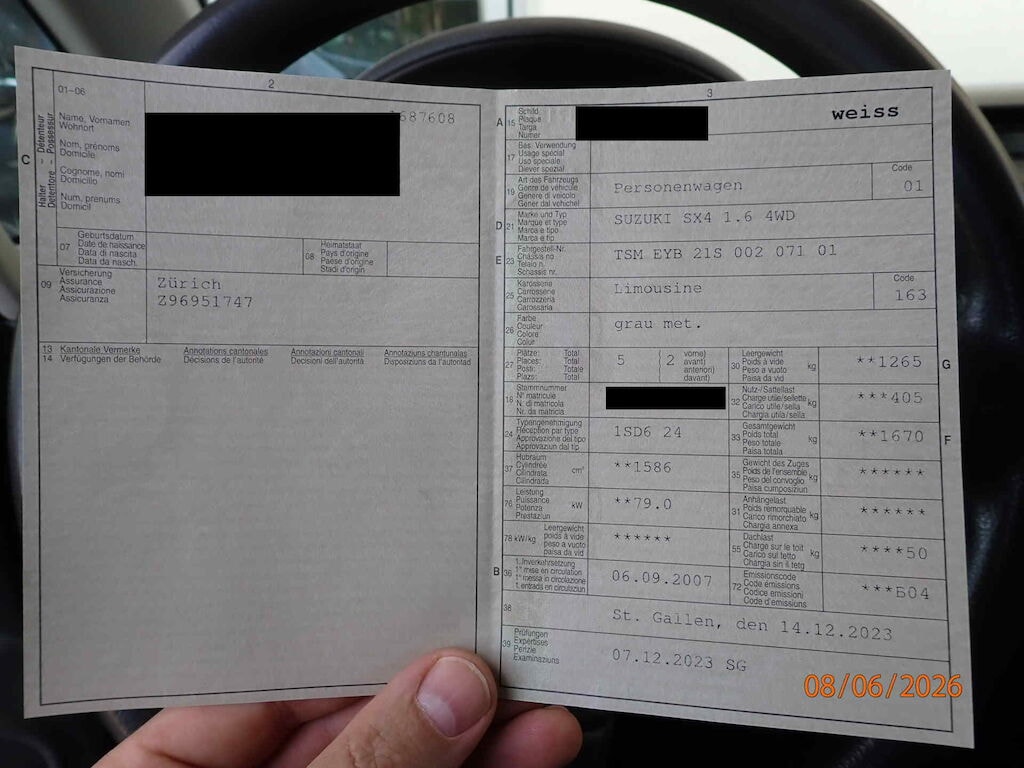 2
01-06
Halter
Détenteur
Detentore
Possessur
C
Name, Vornamen
Wohnort
Nom, prénoms
Domicile
Cognome, nomi
Domicilio
Num, prenums
Domicil
687608
07
Geburtsdatum
Date de naissance
Data di nascita
Data da nasch.
08
Heimatstaat
Pays d'origine
Paese d'origine
Stadi d'origin
09
Versicherung
Assurance
Assicurazione
Assicuranza
Zürich
Z96951747
13
14
Kantonale Vermerke
Verfügungen der Behörde
Annotations cantonales
Décisions de l'autorité
Annotazioni cantonali
Decisioni dell'autorità
Annotaziuns chantunalas
Disposiziuns da l'autoritad
3
A
15
Schild
Plaque
Targa
Numer
weiss
17
Bes. Verwendung
Usage spécial
Uso speciale
Diever spezial
19
Art des Fahrzeugs
Genre de véhicule
Genere di veicolo
Gener dal vehichel
Personenwagen
Code
01
D
21
Marke und Typ
Marque et type
Marca e tipo
Marca e tip
SUZUKI SX4 1.6 4WD
E
23
Fahrgestell-Nr.
Châssis no
Telaio n.
Schassis nr.
TSM EYB 21S 002 071 01
25
Karosserie
Carrosserie
Carrozzeria
Carossaria
Limousine
Code
163
26
Farbe
Couleur
Colore
Colur
grau met.
27
Plätze: Total
Places: Total
Posti: Totale
Plazs: Total
5
2
vorne)
avant)
anteriori)
davant)
30
Leergewicht
Poids à vide
Peso a vuoto
Paisa da vid
kg
**1265
G
18
Stammnummer
N° matricule
N. di matricola
Nr. da matricla
32
Nutz-/Sattellast
Charge utile/sellette
Carico utile/sella
Chargia utila/sella
kg
***405
24
Typengenehmigung
Réception par type
Approvazione del tipo
Approvaziun dal tip
1SD6 24
33
Gesamtgewicht
Poids total
Peso totale
Paisa totala
kg
**1670
F
37
Hubraum
Cylindrée
Cilindrata
Cilindrada
cm³
**1586
35
Gewicht des Zuges
Poids de l'ensemble
Peso del convoglio
Paisa cumposiziun
kg
******
76
Leistung
Puissance
Potenza
Prestaziun
kW
**79.0
31
Anhängelast
Poids remorquable
Carico rimorchiato
Chargia annexa
kg
******
78 kW/kg
Leergewicht
poids à vide
peso a vuoto
paisa da vid
******
55
Dachlast
Charge sur le toit
Carico sul tetto
Chargia sin il tetg
kg
****50
B
36
1. Inverkehrsetzung
1re mise en circulation
1a messa in circolazione
1. entrada en circulaziun
06.09.2007
72
Emissionscode
Code émissions
Codice emissioni
Code d'emissiuns
***B04
38
St. Gallen, den 14.12.2023
39
Prüfungen
Expertises
Perizie
Examinaziuns
07.12.2023 SG
08/06/2026